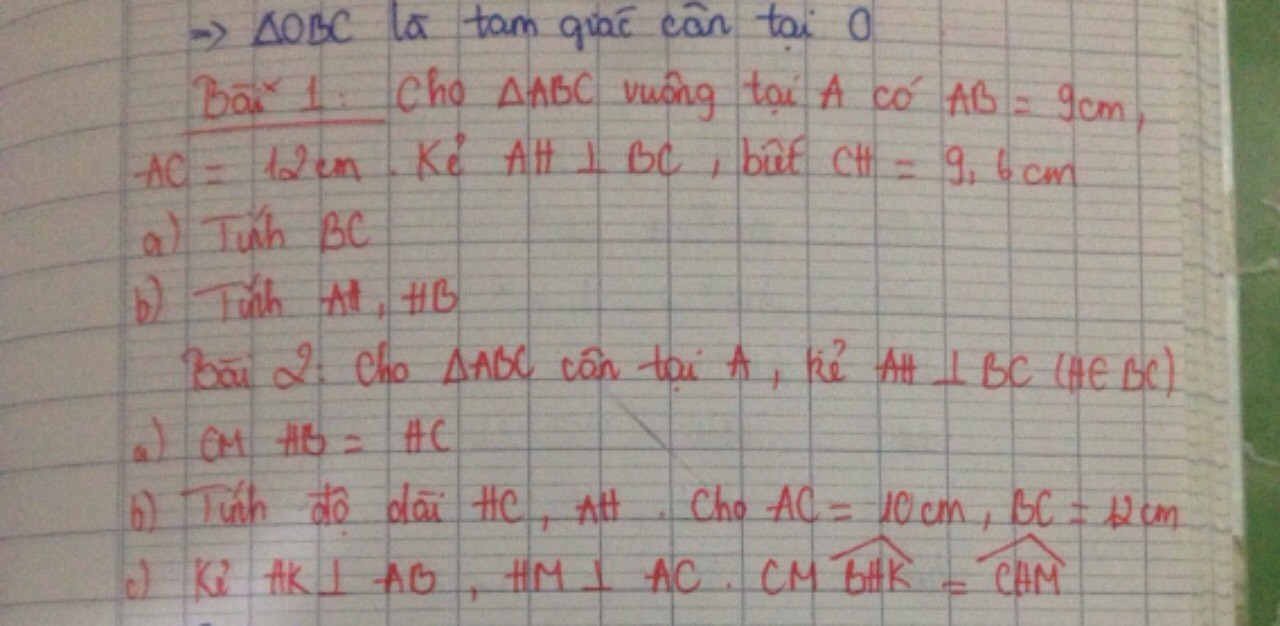 => ΔOBC là tam giác cân tại O
Bài 1: Cho ΔABC vuông tại A có AB = 9cm,
AC = 12cm. Kẻ AH ⊥ BC, biết CH = 9,6cm
a) Tính BC
b) Tính AH, HB
Bài 2: Cho ΔABC cân tại A, kẻ AH ⊥ BC (H∈BC)
a) CM HB = HC
b) Tính độ dài HC, AH. Cho AC = 10cm, BC = 12cm
c) Kẻ HK ⊥ AB, HM ⊥ AC. CM \widehat{BHK} = \widehat{CHM}